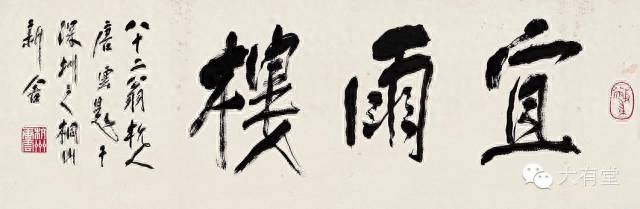 宜雨樓
八十二翁杭人
唐雲題于
深圳之
新舍
杭州唐雲
大有堂